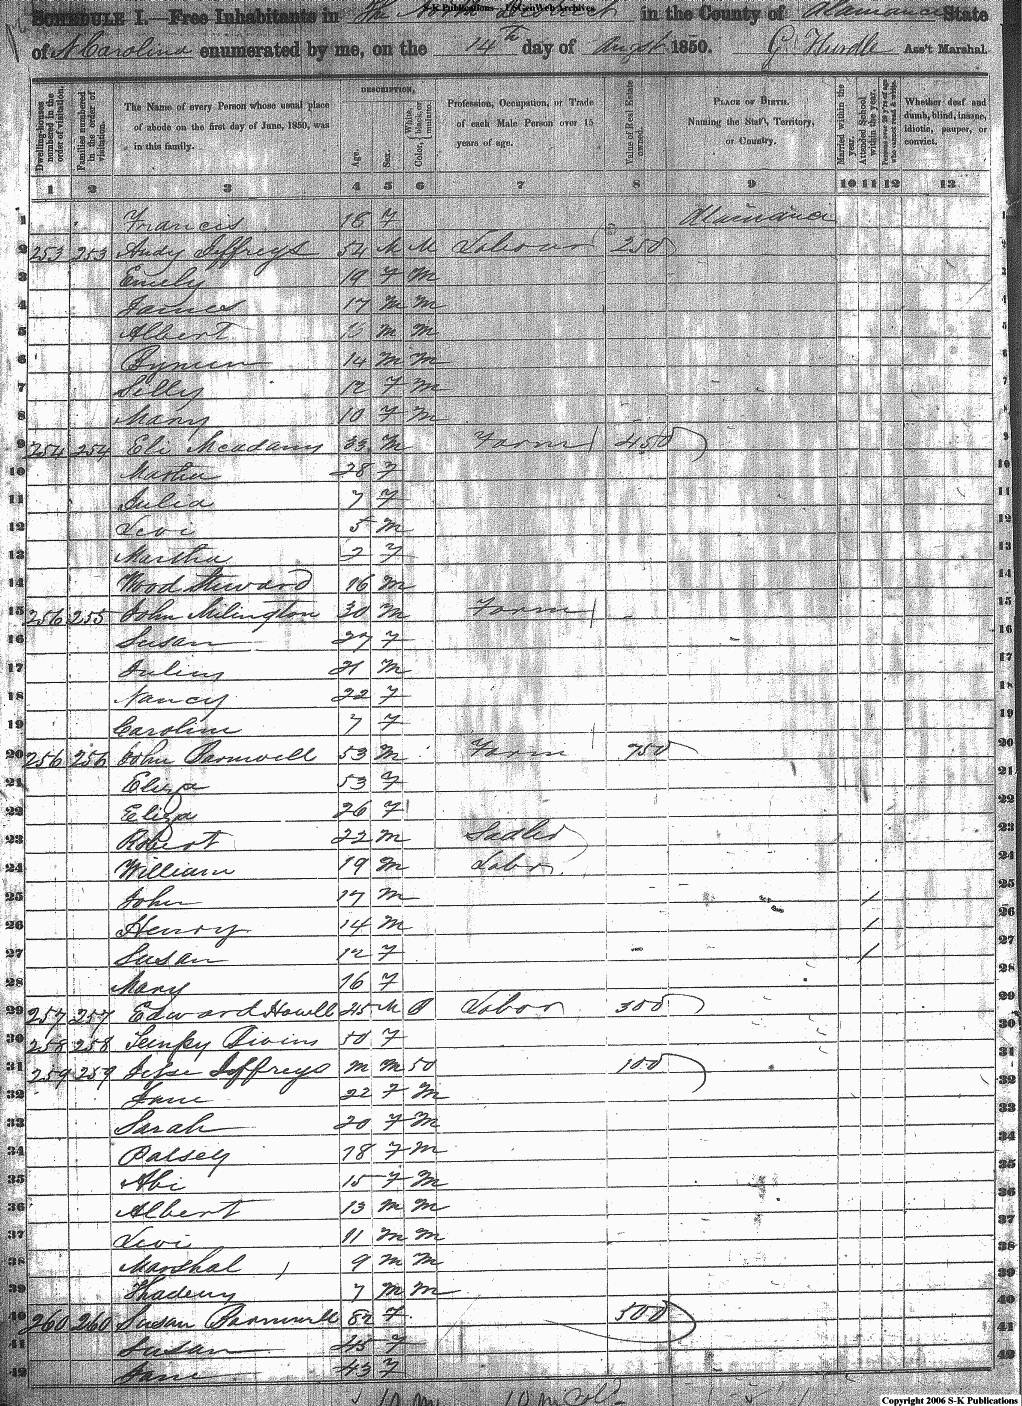 S-K Publications - USGenWeb Archives
SCHEDULE I.—Free Inhabitants in The North District in the County of Alamance State
of N Carolina enumerated by me, on the 14th day of Augst 1850. G Hurdle Ass't Marshal.
Dwelling-houses numbered in the order of visitation.
Families numbered in the order of visitation.
The Name of every Person whose usual place of abode on the first day of June, 1850, was in this family.
DESCRIPTION.
Age.
Sex.
Color, White, black, or mulatto.
Profession, Occupation, or Trade of each Male Person over 15 years of age.
Value of Real Estate owned.
PLACE OF BIRTH.
Naming the State, Territory, or Country.
Married within the year.
Attended School within the year.
Persons over 20 years of age who cannot read & write.
Whether deaf and dumb, blind, insane, idiotic, pauper, or convict.
1 2 3 4 5 6 7 8 9 10 11 12 13
1 Francis 16 F Alamance 1
2 253 253 Andy Jeffreys 54 M M Labour 250
3 Emely 19 F M
4 James 17 M M
5 Albert M M
6 14 M M
7 12 F M
8 Mary 10 F M
9 254 254 Eli Mcadams 33 M Farm 450
10 Martha 28 F
11 Julia 7 F
12 Levi 5 M
13 Martha 2 F
14 Wood Steward 16 M
15 256 255 John Milington 30 M Farm
16 Susan 27 F
17 21 M
18 Nancy 22 F
19 Carolin 7 F
20 256 256 John Barnwell 53 M Farm 750
21 Eliza 53 F
22 Eliza 26 F
23 Robert 22 M Sadler
24 William 19 M Labor
25 John 17 M /
26 Henry 14 M /
27 Susan 12 F /
28 Mary 16 F
29 257 257 Edward Howell 45 M B Labor 300
30 258 258 Tempy Bivins 50 F
31 259 259 Jesse Jeffreys M M 50 100
32 Jane 22 F M
33 Sarah 20 F M
34 Patsey 18 F M
35 Abi 15 F M
36 Albert 13 M M
37 Levi 11 M M
38 Marshal 9 M M
39 7 M M
40 260 260 Susan Barnwell 82 F 500
41 Susan 45 F
42 Jane 43 F
Copyright 2006 S-K Publications